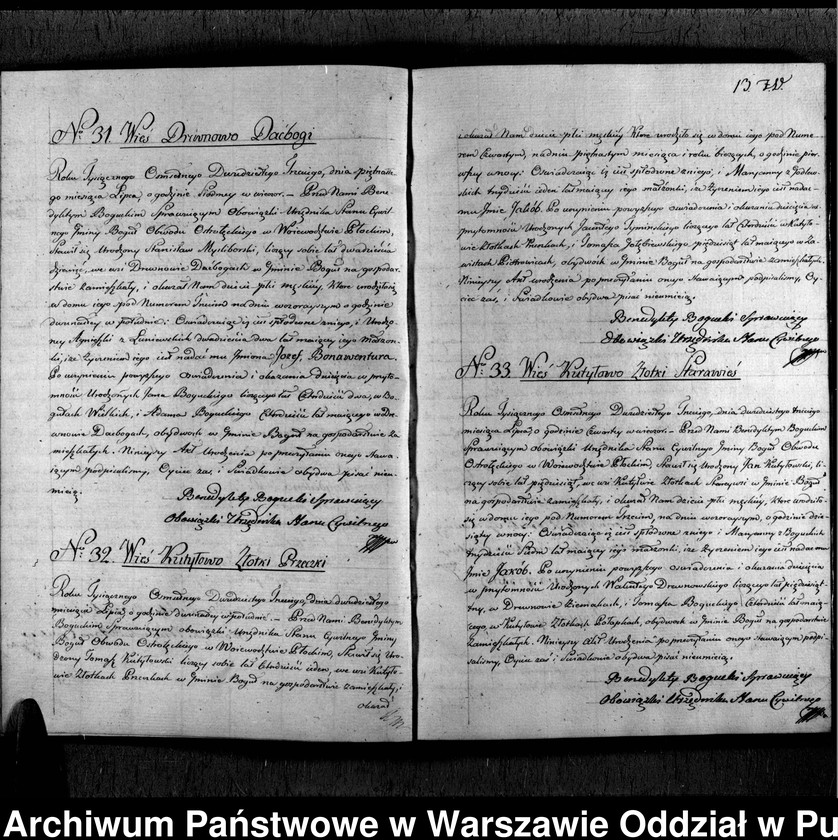 No 31. Wieś Drewnowo Dacbogi
Roku Tysiącznego Osmsetnego Dwudziestego Trzeciego, dnia piętnaste-
go miesiąca Lipca, o godzinie Siódmey w wieczor. — Przed Nami Bene-
dyktym Boguckim Sprawuiącym Obowiązki Urzędnika Stanu Cywil-
nego Gminy Boguł Obwodu Ostrołęckiego w Woiewodztwie Płockim,
Stawił się Urodzony Stanisław Mysliborski, liczący sobie lat dwadzieścia
dziewięć, we wsi Drewnowie Dacbogach w Gminie Boguł na gospodar-
stwie zamieszkały, i okazał Nam dziecie płci męskiey, ktore urodziło się
w domu iego pod Numerem na dniu wczorayszym o godzinie
dwunastey w południe: Oświadczaiąc iż iest spłodzone z niego, i Urodzo-
ney Agnieszki z Łuniewskich dwadzieścia dwa lat maiącey iego Małzon-
ki, iże życzeniem iego iest nadać mu Imiona Jozef, Bonawentura.
Po uczynieniu powyższego oświadczenia i okazaniu dziecięcia w przyto-
mności Urodzonych Jana Boguckiego liczącego lat Czterdzieści dwa, w Bo-
gutach Wielkich, i Adama Boguckiego Czterdzieści lat maiącego w Dre-
wnowie Dacbogach, obydwoch w Gminie Boguł na gospodarstwie za-
mieszkałych. Ninieyszy Akt Urodzenia po przeczytaniu onego Stawa-
iącym podpisaliśmy, Oyciec zaś i Swiadkowie obydwa pisać nieu-
mieią.
Benedykty Bogucki Sprawuiący
Obowiązki Urzędnika Stanu Cywilnego
No 32. Wieś Kutyłowo Złotki Przeczki
Roku Tysiącznego Osmsetnego Dwudziestego Trzeciego, dnia dwudziestego
miesiąca Lipca o godzinie dwunastey w południe. — Przed Nami Benedyktym
Boguckim Sprawuiącym obowiązki Urzędnika Stanu Cywilnego Gminy
Boguł Obwodu Ostrołęckiego w Woiewodztwie Płockim, Stawił się Uro-
dzony Tomasz Kutyłowski liczący sobie lat Czterdzieści ieden, we wsi Kutyło-
wie Złotkach Przeczkach w Gminie Boguł na gospodarstwie zamieszkały, i
okazał
13.
i okazał Nam dziecie płci męskiey ktore urodziło się w domu iego pod Nume-
rem Czwartym, na dniu piętnastym miesiąca i roku bieżących, o godzinie pier-
wszey w nocy: Oświadczaiąc iż iest spłodzone z niego, i Maryanny z Godlew-
skich trzydzieści ieden lat maiącey iego małżonki, iże życzeniem iego iest nadać
mu Imie Jakób. Po uczynieniu powyższego oświadczenia i okazaniu dziecięcia w
przytomności Urodzonych Jacentego Tymińskiego liczącego lat Czterdzieści w Kutyło-
wie Złotkach, i Tomasza Gołębiewskiego, piędziesiąt lat maiącego w Za-
wistach Piotrowicach, obydwoch w Gminie Boguł na gospodarstwie zamieszkałych.
Ninieyszy Akt urodzenia po przeczytaniu onego Stawaiącym podpisaliśmy, Oy-
ciec zaś, i Swiadkowie obydwa pisać nieumieią.
Benedykty Bogucki Sprawuiący
Obowiązki Urzędnika Stanu Cywilnego
No 33. Wieś Kutyłowo Złotki Starawieś
Roku Tysiącznego Osmsetnego Dwudziestego Trzeciego, dnia dwudziestego trzeciego
miesiąca Lipca, o godzinie Czwartey w wieczor. — Przed Nami Benedyktym Boguckim
Sprawuiącym obowiązki Urzędnika Stanu Cywilnego Gminy Boguł Obwodu
Ostrołęckiego w Woiewodztwie Płockim, Stawił się Urodzony Jan Kutyłowski, li-
czący sobie lat piędziesiąt, we wsi Kutyłowie Złotkach Stareywsi w Gminie Boguł
na gospodarstwie zamieszkały, i okazał Nam dziecie płci męskiey, ktore urodzi-
ło się w domu iego pod Numerem Trzecim, na dniu wczorayszym, o godzinie dzie-
siątey w nocy: Oświadczaiąc iż iest spłodzone z niego i Maryanny z Boguckich
trzydzieści Siedm lat maiącey iego małżonki, iże życzeniem iego iest nadać mu
Imie Jakób. Po uczynieniu powyższego oświadczenia i okazaniu dziecięcia
w przytomności Urodzonych Walentego Drewnowskiego liczącego lat piędziesiąt
trzy, w Drewnowie Ziemakach, i Tomasza Boguckiego Czterdzieści lat maią-
cego, w Kutyłowie Złotkach Połapkach, obydwoch w Gminie Boguł na gospodarstwie
zamieszkałych. Ninieyszy Akt Urodzenia po przeczytaniu onego Stawaiącym podpi-
saliśmy, Oyciec zaś i Swiadkowie obydwa pisać nieumieią.
Benedykty Bogucki Sprawuiący
Obowiązki Urzędnika Stanu Cywilnego
Archiwum Państwowe w Warszawie Oddział w Pu